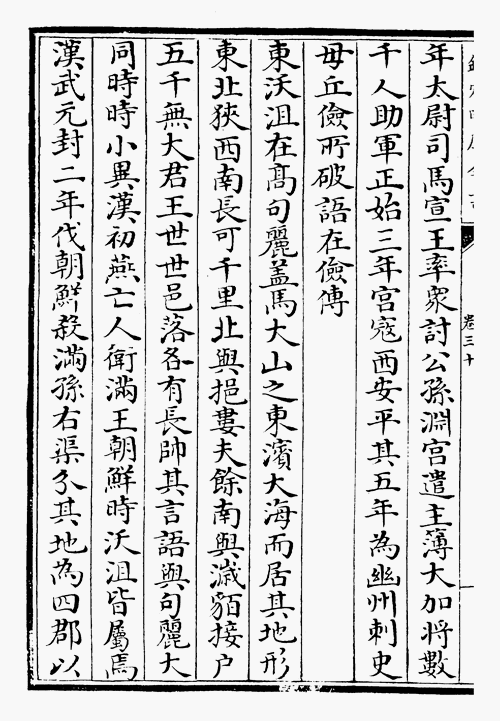 卷三十
年太尉司馬宣王率衆討公孫淵宫遣主簿大加將數
千人助軍正始三年宫宼西安平其五年為幽州刺史
毋丘儉所破語在儉傳
東沃沮在髙句麗盖馬大山之東濱大海而居其地形
東北狹西南長可千里北與挹婁夫餘南與濊貊接户
五千無大君王世世邑落各有長帥其言語與句麗大
同時時小異漢初燕亡人衛滿王朝鮮時沃沮皆屬焉
漢武元封二年伐朝鮮殺滿孫右渠分其地為四郡以